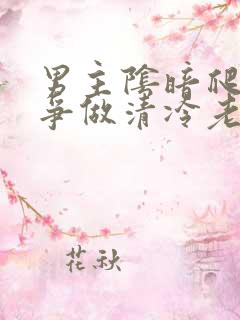 男主陰暗爬
爭做清冷老
花秋